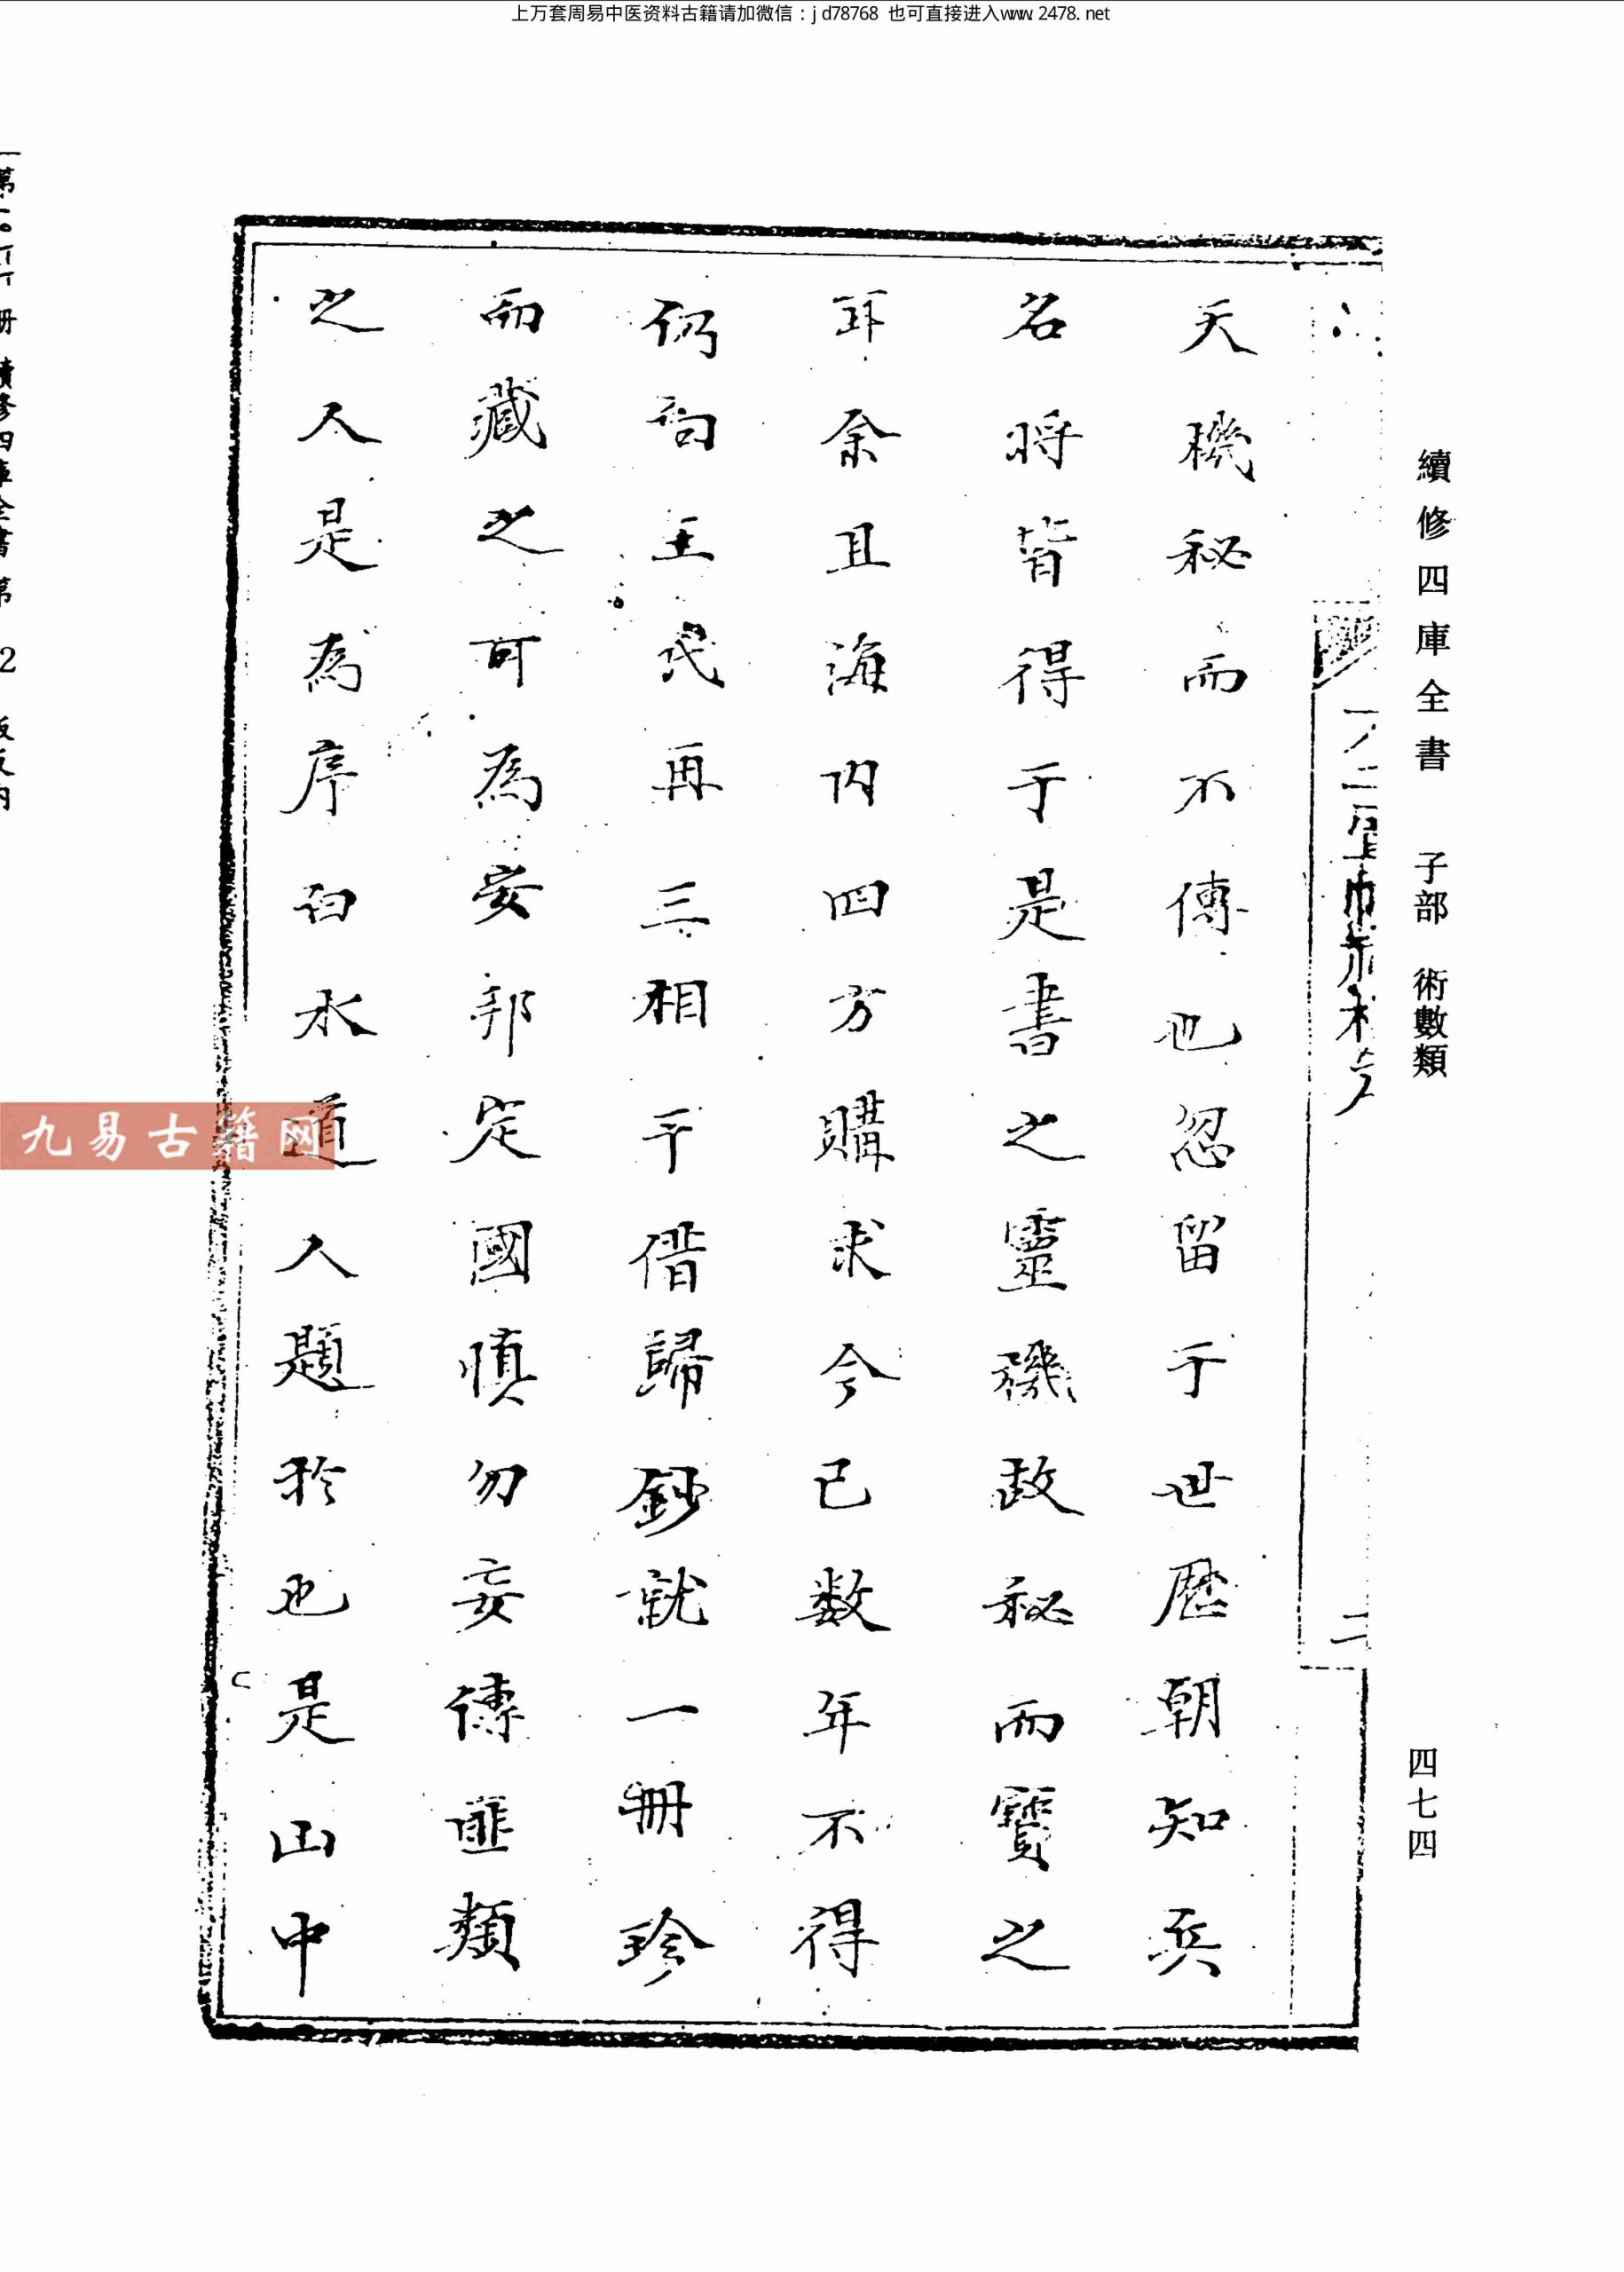 上万套周易中医资料古籍请加微信：jd78768 也可直接进入www.2478.net
續修四庫全書 子部 術數類
四七四
二
天機秘而不傳也忍留于世歷朝知兵
名將皆得于是書之靈機故秘而寶之
耳余且海内四方購求今已数年不得
仍向王氏再三相干借歸鈔就一冊珍
而藏之可為安邦定國慎勿妄傳匪類
之人是為序白水道人題於也是山中
九易古籍网